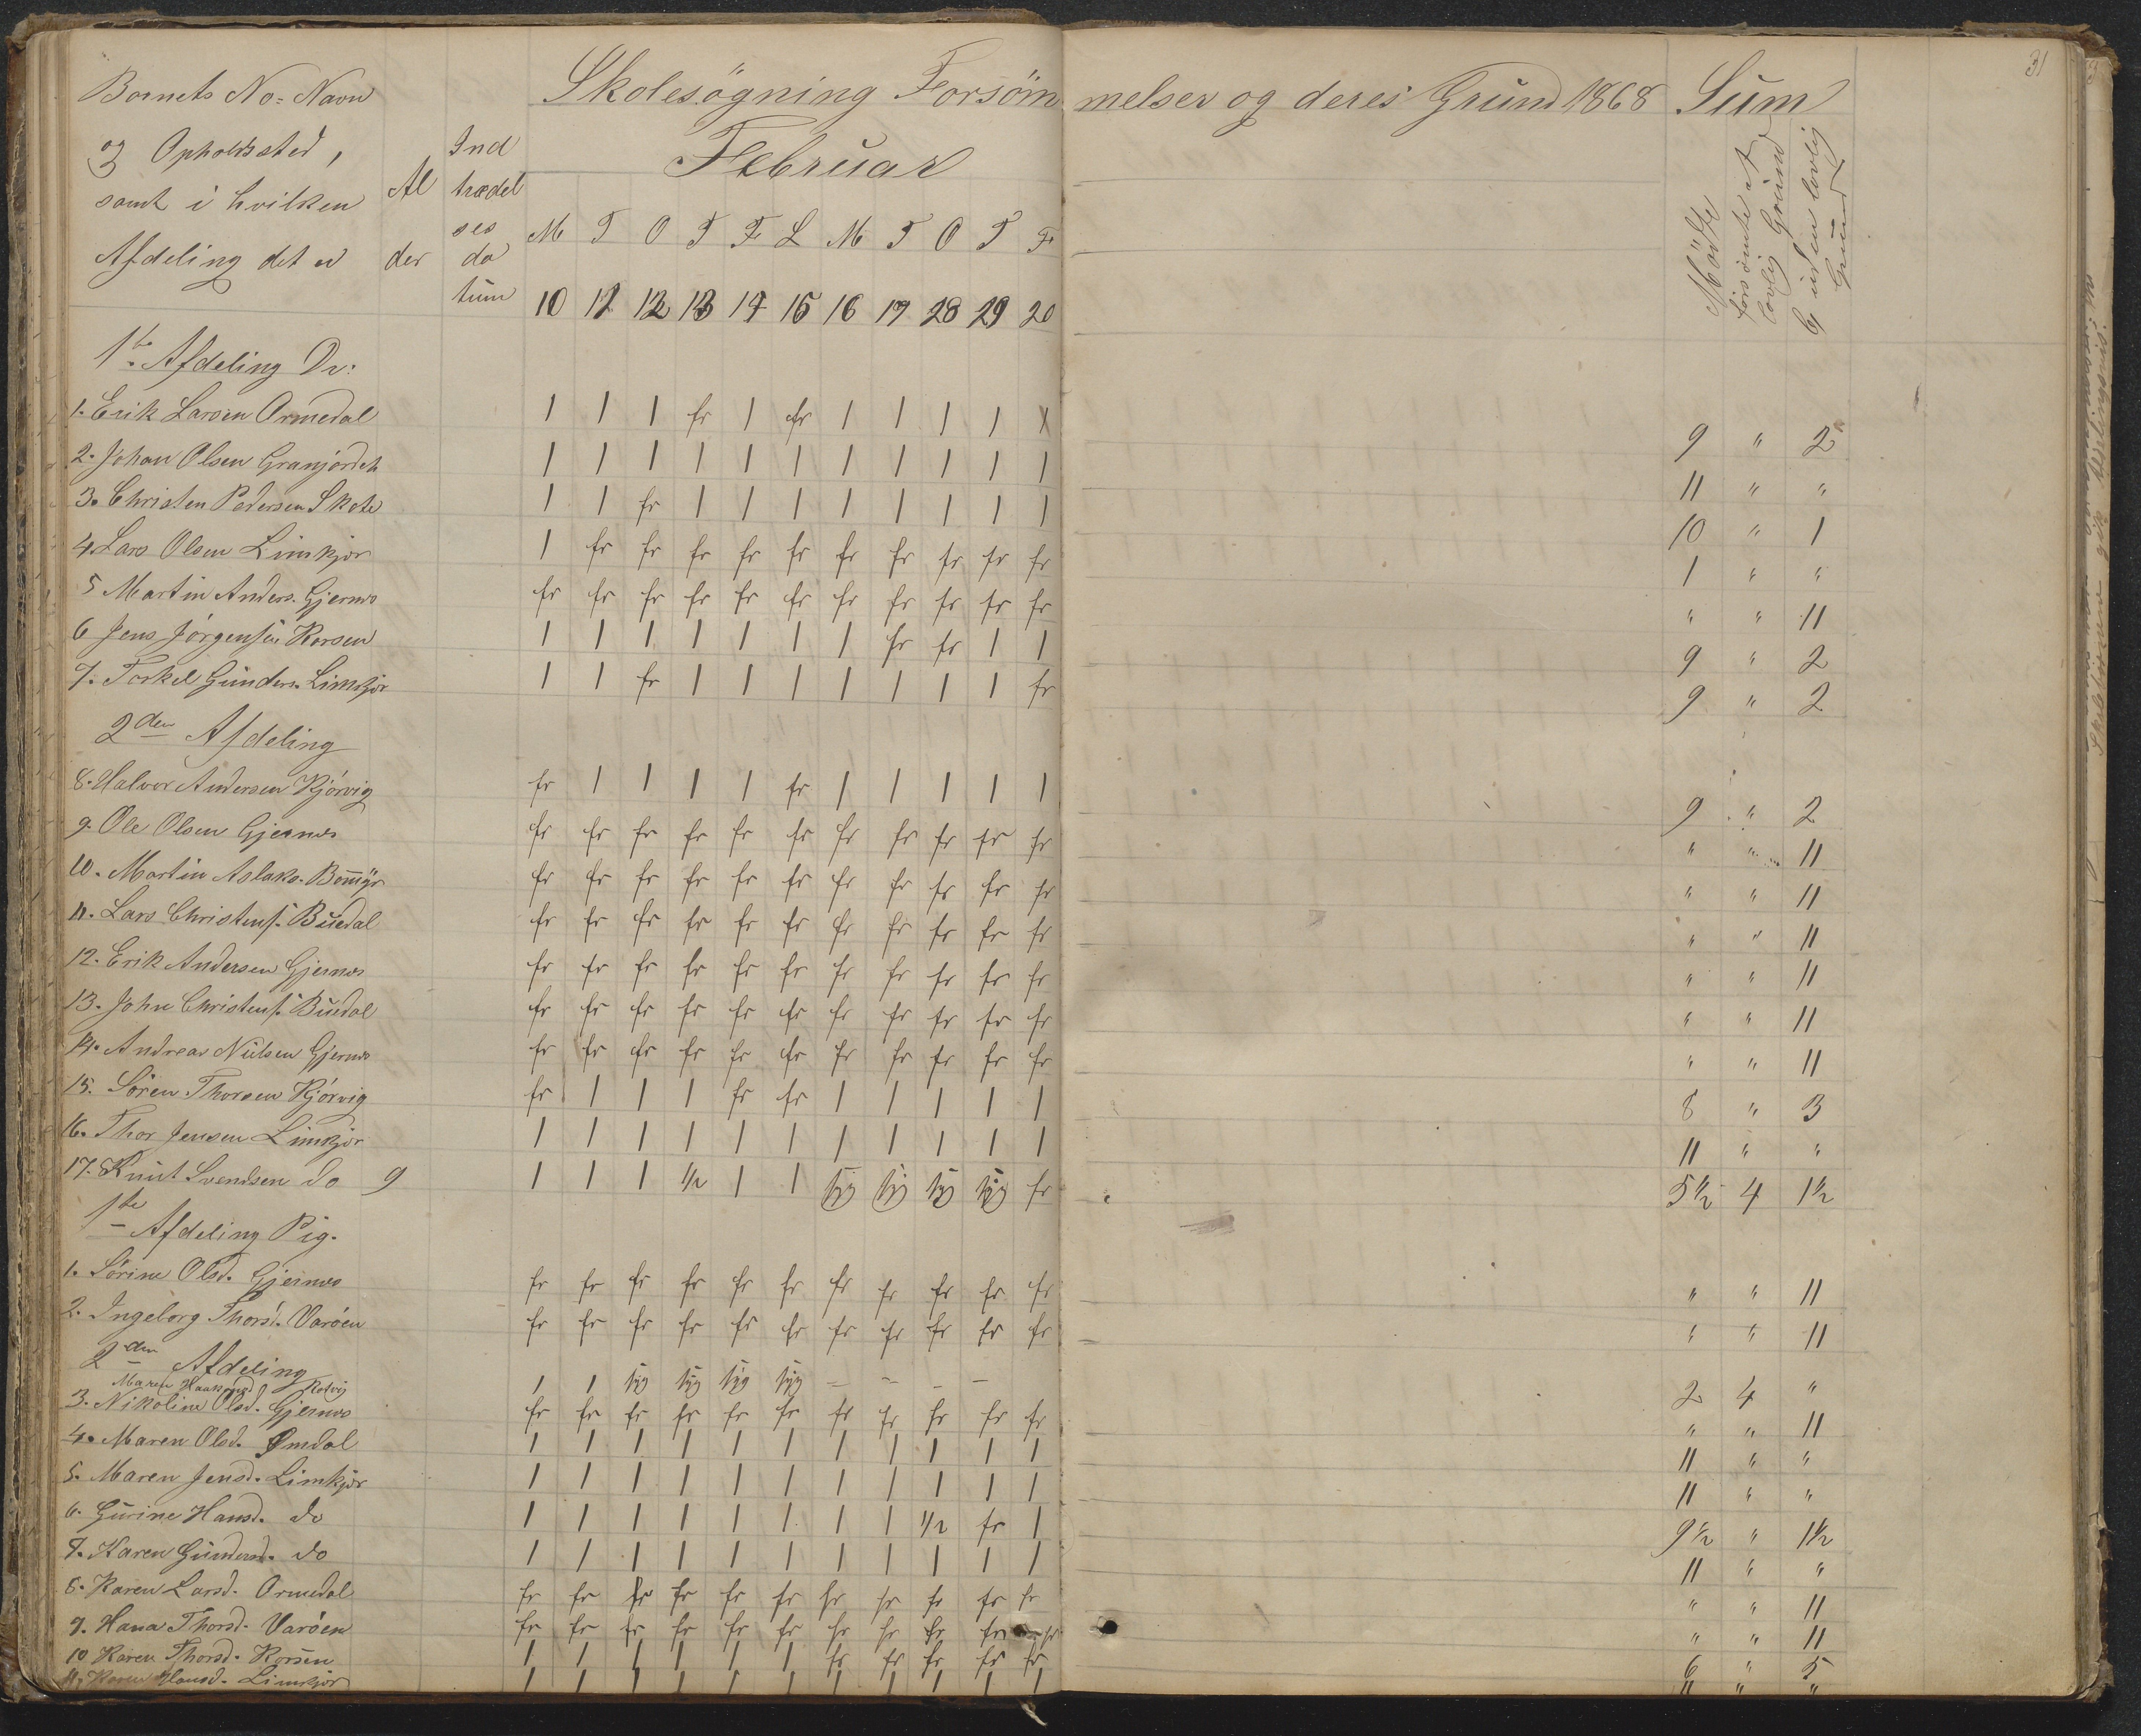 31
Skolesögning Forsöm melser og deres Grund 1868 Sum
Barnets No= Navn
og Opholdssted,
samt i hvilken
Afdeling det er
Al
der
Ind
trædel
ses
da
tum
Februar
Mödte
forsömte af
lovlig Grund
uden lovlig
Grund
M T O T F L M T O T F
10 12 12 13 14 15 16 19 28 29 20
1ste Afdeling Dr:
1. Erik Larsen Ormedal 1 1 1 fr 1 fr 1 1 1 1 1 9 " 2
2. Johan Olsen Granjordet 1 1 1 1 1 1 1 1 1 1 1 11 " "
3. Christen Pedersen Skete 1 1 fr 1 1 1 1 1 1 1 1 10 " 1
4. Lars Olsen Limkjær 1 fr fr fr fr fr fr fr fr fr fr 1 " "
5 Martin Anders. Gjernes fr fr fr fr fr fr fr fr fr fr fr " " 11
6 Jens Jörgensen Korsen 1 1 1 1 1 1 1 fr fr 1 1 9 " 2
7. Torkel Gunders. Limkjær 1 1 fr 1 1 1 1 1 1 1 fr 9 " 2
2den Afdeling
8. Halvor Andersen Kjörvig fr 1 1 1 1 fr 1 1 1 1 1 9 " 2
9. Ole Olsen Gjernes fr fr fr fr fr fr fr fr fr fr fr " " 11
10. Martin Aslaks. Bommyr fr fr fr fr fr fr fr fr fr fr fr " " 11
11. Lars Christens. Buedal fr fr fr fr fr fr fr fr fr fr fr " " 11
12. Erik Andersen Gjernes fr fr fr fr fr fr fr fr fr fr fr " " 11
13. John Christens. Buedal fr fr fr fr fr fr fr fr fr fr fr " " 11
14. Andreas Nielsen Gjernes fr fr fr fr fr fr fr fr fr fr fr " " 11
15. Sören Thorsen Kjörvig fr 1 1 1 fr fr 1 1 1 1 1 8 " 3
16. Thor Jensen Limkjær 1 1 1 1 1 1 1 1 1 1 1 11 " "
17. Knut Svendsen do 9 1 1 1 1/2 1 1 syg syg syg syg fr 5 1/2 4 1 1/2
1ste Afdeling Pig.
1. Sörine Olsd. Gjernes fr fr fr fr fr fr fr fr fr fr fr " " 11
2. Ingeborg Thorsd. Varöen fr fr fr fr fr fr fr fr fr fr fr " " 11
2den Afdeling
Maren 1 1 syg syg syg syg – – – – 2 4 "
3. Nikoline Olsd. Gjernes fr fr fr fr fr fr fr fr fr fr fr " " 11
4. Maren Olsd. Omdal 1 1 1 1 1 1 1 1 1 1 1 11 " "
5. Maren Jensd. Limkjær 1 1 1 1 1 1 1 1 1 1 1 11 " "
6. Gurine Hansd. do 1 1 1 1 1 1 1 1 1/2 fr 1 9 1/2 " 1 1/2
7. Karen Gundersd. do 1 1 1 1 1 1 1 1 1 1 1 11 " "
8. Karen Larsd. Ormedal fr fr fr fr fr fr fr fr fr fr fr " " 11
9. Hana Thorsd. Varöen fr fr fr fr fr fr fr fr fr fr fr " " 11
10 Karen Thorsd. Korsen 1 1 1 1 1 1 fr fr fr fr fr 6 " 5
11. Karen Hansd. Limkjær 1 1 1 1 1 1 1 1 1 1 1 11 " "